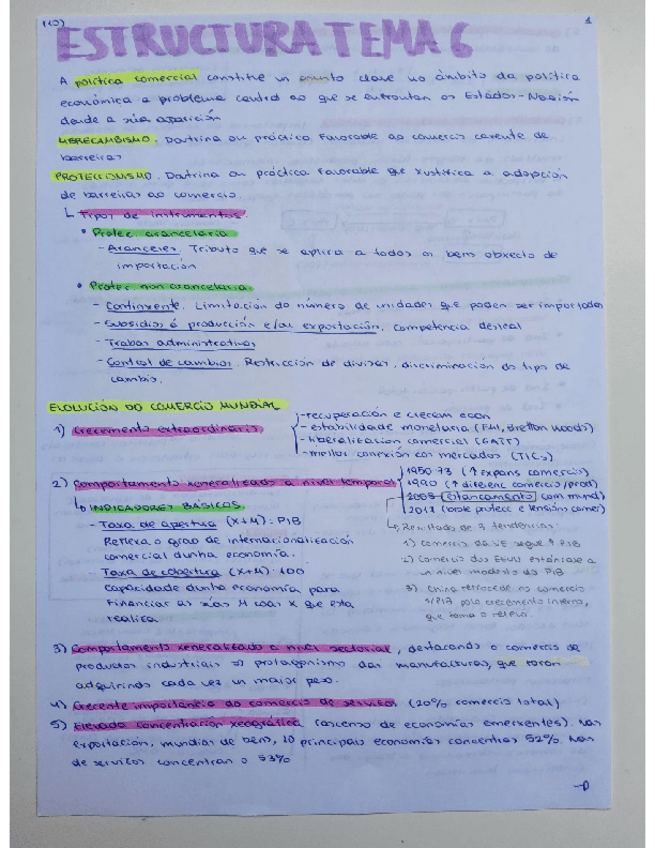 1
ESTRUCTURA TEMA 6
A política comercial constitue un punto clave no ámbito da política
económica e problema central ao que se enfrontan os Estados-Nación
dende a súa aparición
LIBRECAMBISMO. Doutrina ou práctica favorable ao comercio carente de
barreiras
PROTECCIONISMO. Doutrina ou práctica favorable que xustifica a adopción
de barreiras ao comercio.
Tipos de instrumentos.
• Protec. arancelaria
- Aranceles. Tributo que se aplica a todos os bens obxecto de
importación
• Protec non arancelaria
- Continxente. Limitación do número de unidades que poden ser importadas
- Subsidios á producción e/ou exportación. competencia desleal
- Trabas administrativas
- Control de cambios. Restricción de divisas, discriminación do tipo de
cambio.
EVOLUCIÓN DO COMERCIO MUNDIAL
1) Crecemento extraordinario
- recuperación e crecem econ
- estabilidade monetaria (FMI, Bretton Woods)
- liberalización comercial (GATT)
- mellor conexión cos mercados (TICs)
2) Comportamento xeneralizado a nivel temporal
1950-73 (↑ expans comercio)
1990 (↑ diferenc comercio/prod)
2008 estancamento (com mund)
2018 (prote e tensións comer)
INDICADORES BÁSICOS
- Taxa de apertura (X+M): PIB
Reflexa o grao de internacionalización
comercial dunha economía.
Taxa de cobertura (X÷M)·100
capacidade dunha economía para
financiar as súas M coas X que esta
realiza
Resultado de 3 tendencias:
1) Comercio da UE segue ↑ PIB
2) Comercio dos EEUU estáncase a
un nivel modesto do PIB
3) China retrocede no comercio
s/PIB polo crecemento interno,
que toma o relevo.
3) Comportamento xeneralizado a nivel sectorial, destacando o comercio de
produtos industriais => protagonismo das manufacturas, que foron
adquirindo cada vez un maior peso.
4) Crecente importancia do comercio de servizos (20% comercio total)
5) Elevada concentración xeográfica (ascenso de economías emerxentes). Nas
exportación, mundiais de bens, 10 principais economías concentran 52%. Nas
de servizos concentran o 53%